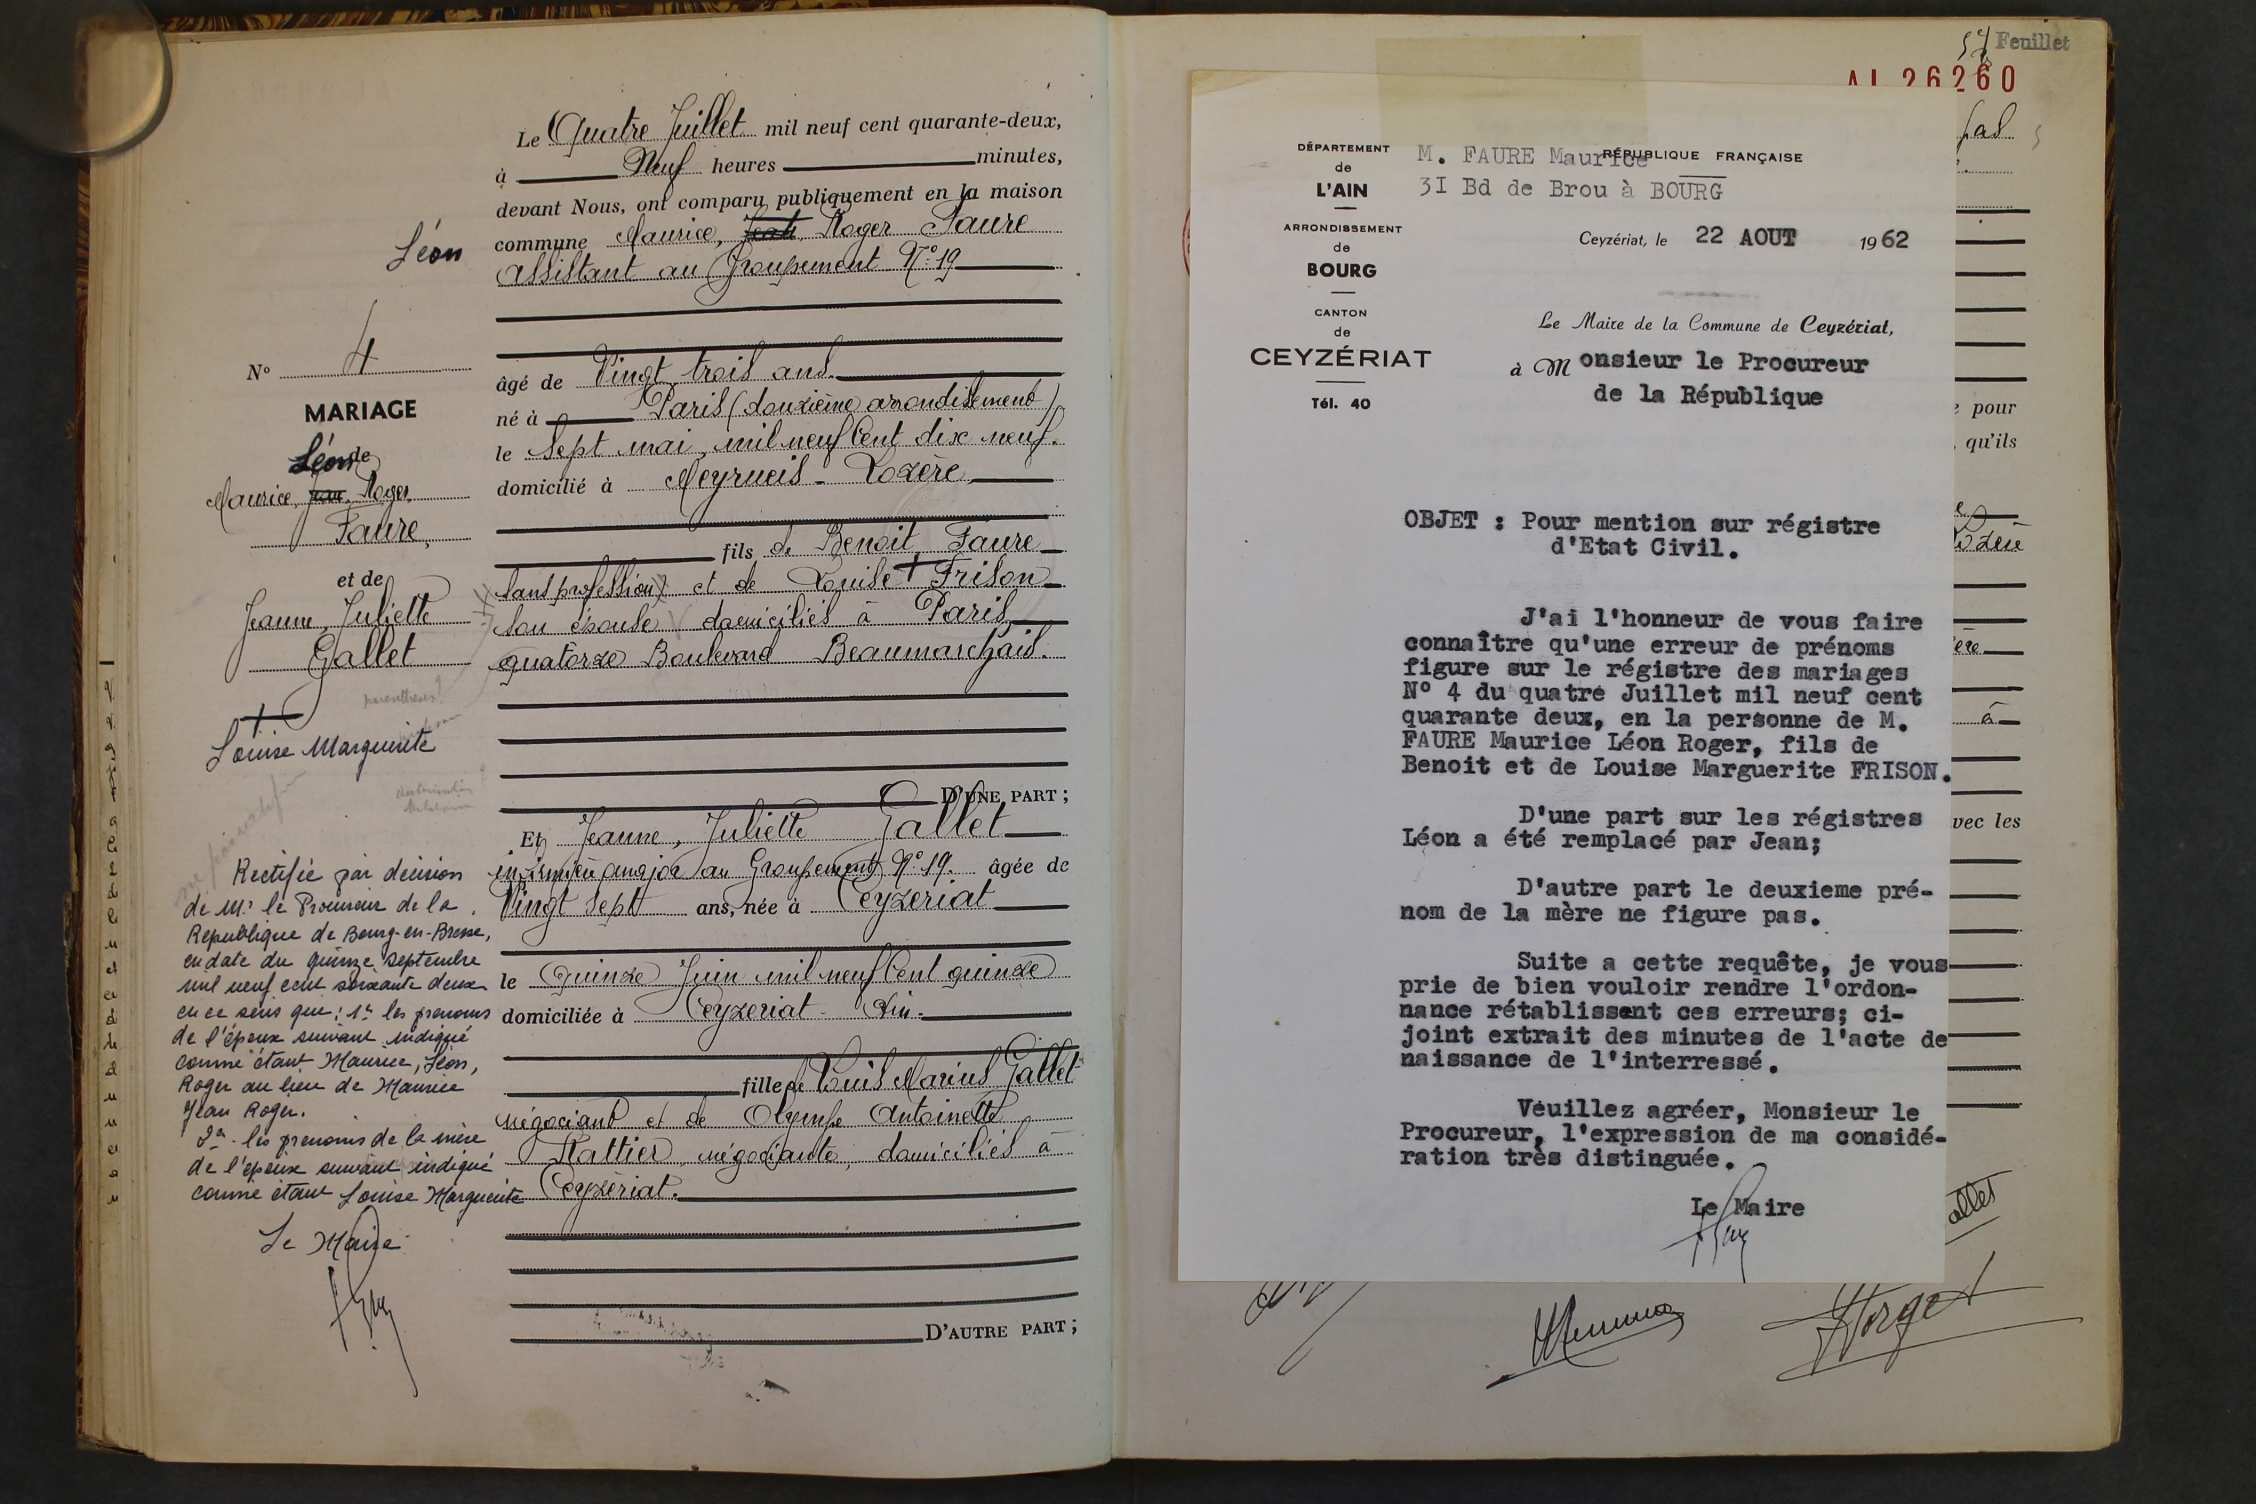 Le Quatre Juillet mil neuf cent quarante-deux,
à Neuf heures minutes,
devant Nous, ont comparu publiquement en la maison
commune Maurice, Jean, Roger Faure
assistant au Groupement N° 19
âgé de Vingt trois ans
né à Paris (douzième arrondissement)
le sept mai mil neuf cent dix neuf.
domicilié à Meyrueis - Lozère
fils de Benoit Faure
sans profession et de Louise + Frison
son épouse domiciliés à Paris
quatorze Boulevard Beaumarchais.
D'UNE PART ;
Et Jeanne, Juliette Gallet
infirmière major au Groupement N° 19. âgée de
Vingt sept ans, née à Ceyzeriat
le Quinze Juin mil neuf cent quinze
domiciliée à Ceyzeriat - Ain -
fille de Louis Marius Gallet
négociant et de Olympe Antoinette
Rattier, négociante, domiciliés à
Ceyzériat.
D'AUTRE PART ;
Léon
N° 4
MARIAGE
Léon de
Maurice, Jean, Roger
Faure,
et de
Jeanne, Juliette
Gallet
+
Louise Marguerite
Rectifié par décision
de Mr le Procureur de la
République de Bourg-en-Bresse,
en date du quinze septembre
mil neuf cent soixante deux
en ce sens que : 1° les prenoms
de l'époux suivant indiqué
comme étant Maurice, Léon,
Roger au lieu de Maurice
Jean Roger.
2° - les prenoms de la mère
de l'époux suivant indiqué
comme étant Louise Marguerite
Le Maire
57 Feuillet
AL 26260
DÉPARTEMENT
de
L'AIN
ARRONDISSEMENT
de
BOURG
CANTON
de
CEYZÉRIAT
Tél. 40
M. FAURE Maurice
RÉPUBLIQUE FRANÇAISE
3I Bd de Brou à BOURG
Ceyzériat, le 22 AOUT 1962
Le Maire de la Commune de Ceyzériat,
à Monsieur le Procureur
de la République
OBJET : Pour mention sur régistre
d'Etat Civil.
J'ai l'honneur de vous faire
connaître qu'une erreur de prénoms
figure sur le régistre des mariages
N° 4 du quatre Juillet mil neuf cent
quarante deux, en la personne de M.
FAURE Maurice Léon Roger, fils de
Benoit et de Louise Marguerite FRISON.
D'une part sur les régistres
Léon a été remplacé par Jean;
D'autre part le deuxieme pré-
nom de la mère ne figure pas.
Suite a cette requête, je vous
prie de bien vouloir rendre l'ordon-
nance rétablissant ces erreurs; ci-
joint extrait des minutes de l'acte de
naissance de l'interressé.
Veuillez agréer, Monsieur le
Procureur, l'expression de ma considé-
ration très distinguée.
Le Maire
pas
pour
qu'ils
ère
à
vec les
allet